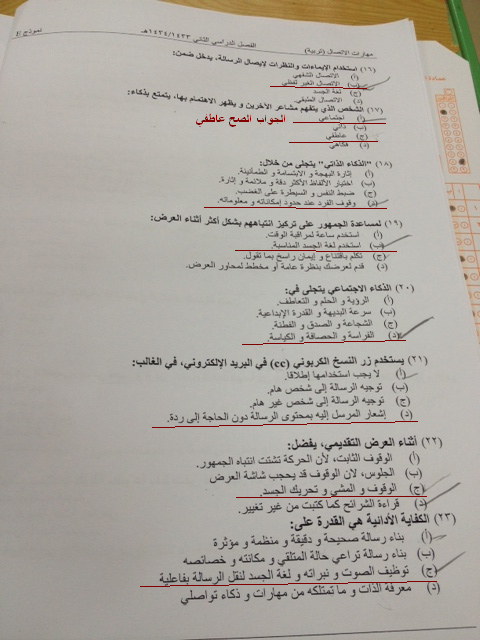 مهارات الاتصال (تربية) الفصل الدراسي الثاني ١٤٣٤/١٤٣٣هـ نموذج E
(١٦) استخدام الإيماءات والنظرات لإيصال الرسالة، يدخل ضمن:
أ) الاتصال الشفهي
ب) الاتصال الغير لفظي
ج) لغة الجسد
د) الاتصال
(١٧) الشخص الذي يتفهم مشاعر الآخرين و يظهر الاهتمام بها، يتمتع بذكاء:
أ) اجتماعي
الجواب الصح عاطفي
ب) ذاتي
ج) عاطفي
د) فكاهي
(١٨) "الذكاء الذاتي" يتجلى من خلال:
أ) إثارة البهجة و الابتسامة و الطمأنينة.
ب) اختيار الألفاظ الأكثر دقة و ملائمة و إثارة.
ج) ضبط النفس و السيطرة على الغضب.
د) وقوف الفرد عند حدود إمكاناته و معلوماته.
(١٩) لمساعدة الجمهور على تركيز انتباههم بشكل أكثر أثناء العرض:
أ) استخدم ساعة لمراقبة الوقت.
ب) استخدم لغة الجسد المناسبة.
ج) تكلم باقتناع و إيمان راسخ بما تقول.
د) قدم لعرضك بنظرة عامة أو مخطط لمحاور العرض.
(٢٠) الذكاء الاجتماعي يتجلى في:
أ) الرؤية و الحلم و التعاطف.
ب) سرعة البديهة و القدرة الإبداعية.
ج) الشجاعة و الصدق و الفطنة.
د) الفراسة و الحصافة و الكياسة.
(٢١) يستخدم زر النسخ الكربوني (cc) في البريد الإلكتروني، في الغالب:
أ) لا يجب استخدامها إطلاقا.
ب) توجيه الرسالة إلى شخص هام.
ج) توجيه الرسالة إلى شخص غير هام.
د) إشعار المرسل إليه بمحتوى الرسالة دون الحاجة إلى ردة.
(٢٢) أثناء العرض التقديمي، يفضل:
أ) الوقوف الثابت، لأن الحركة تشتت انتباه الجمهور.
ب) الجلوس، لان الوقوف قد يحجب شاشة العرض
ج) الوقوف و المشي و تحريك الجسد.
د) قراءة الشرائح كما كتبت من غير تغيير.
(٢٣) الكفاية الأدائية هي القدرة على:
أ) بناء رسالة صحيحة و دقيقة و منظمة و مؤثرة
ب) بناء رسالة تراعي حالة المتلقي و مكانته و خصائصه
ج) توظيف الصوت و نبراته و لغة الجسد لنقل الرسالة بفاعلية
د) معرفة الذات و ما تمتلكه من مهارات و ذكاء تواصلي